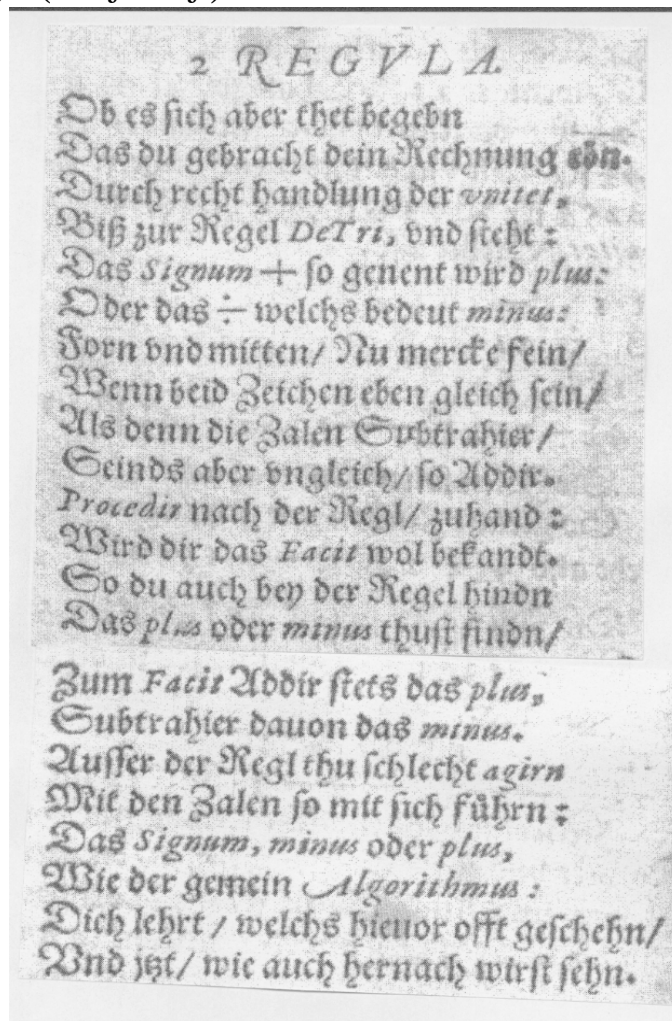 2 REGVLA.
Ob es sich aber thet begebn
Das du gebracht dein Rechnung ebn.
Durch recht handlung der vnitet,
Biß zur Regel DeTri, vnd steht:
Das Signum + so genent wird plus:
Oder das ÷ welchs bedeut minus:
Forn vnd mitten/ Nu mercke fein/
Wenn beid Zeichen eben gleich sein/
Als denn die Zalen Subtrahier/
Seinds aber vngleich/ so Addir.
Procedir nach der Regl/ zuhand:
Wird dir das Facit wol bekandt.
So du auch bey der Regel hindn
Das plus oder minus thust findn/
Zum Facit Addir stets das plus,
Subtrahier dauon das minus.
Ausser der Regl thu schlecht agirn
Mit den Zalen so mit sich führn:
Das Signum, minus oder plus,
Wie der gemein Algorithmus:
Dich lehrt/ welchs hieuor offt geschehn/
Vnd jtzt/ wie auch hernach wirst sehn.